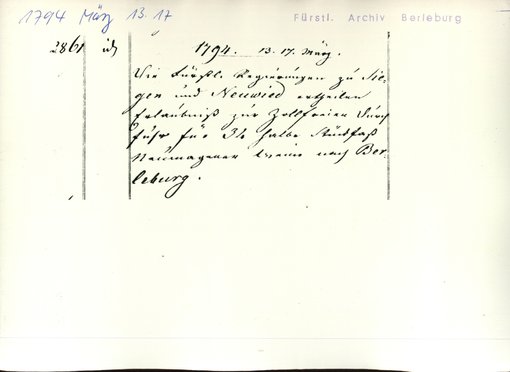 1794 März 13.17
Fürstl. Archiv Berleburg
2861 id
1794. 13. 17. März.
Die Fürstl. Regierungen zu Sie-
gen und Neuwied ertheilen
Erlaubniß zur Zollfreien Durch
fuhr für 3½ halbe Stückfaß
Neumagener Weine nach Ber-
leburg.